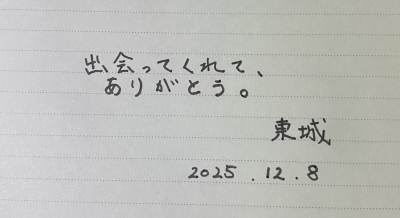 出会ってくれて、
ありがとう。
東城
2025.12.8